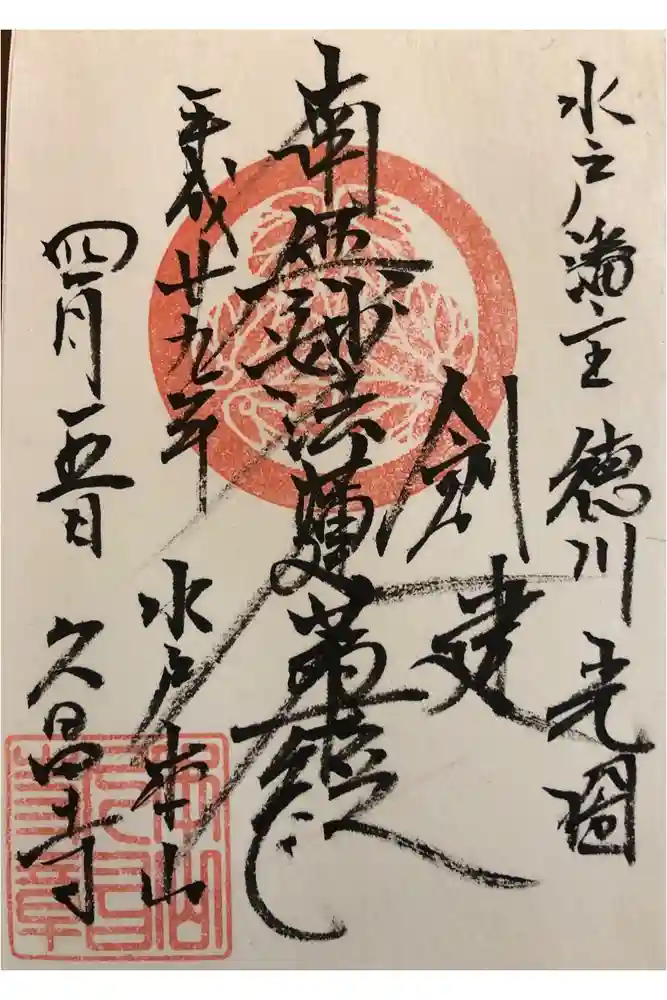 水戸藩主 徳川 光圀
創建
南無妙法蓮華経
平成廿九年
四月五日
水戸本山
久昌寺